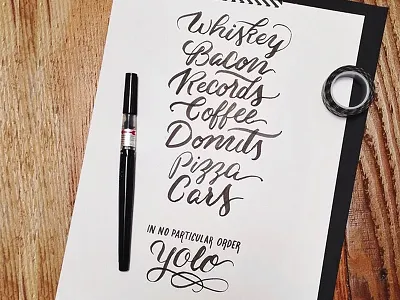 Whiskey
Bacon
Records
Coffee
Donuts
Pizza
Cars
IN NO PARTICULAR ORDER
yolo